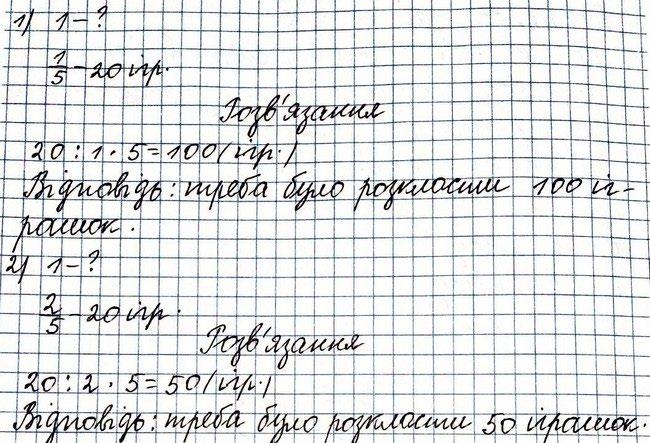 1) 1 - ?
1/5 - 20 ігр.
Розв'язання
20 : 1 · 5 = 100 (ігр.)
Відповідь: треба було розкласти 100 іг-
рашок.
2) 1 - ?
2/5 - 20 ігр.
Розв'язання
20 : 2 · 5 = 50 (ігр.)
Відповідь: треба було розкласти 50 іграшок.